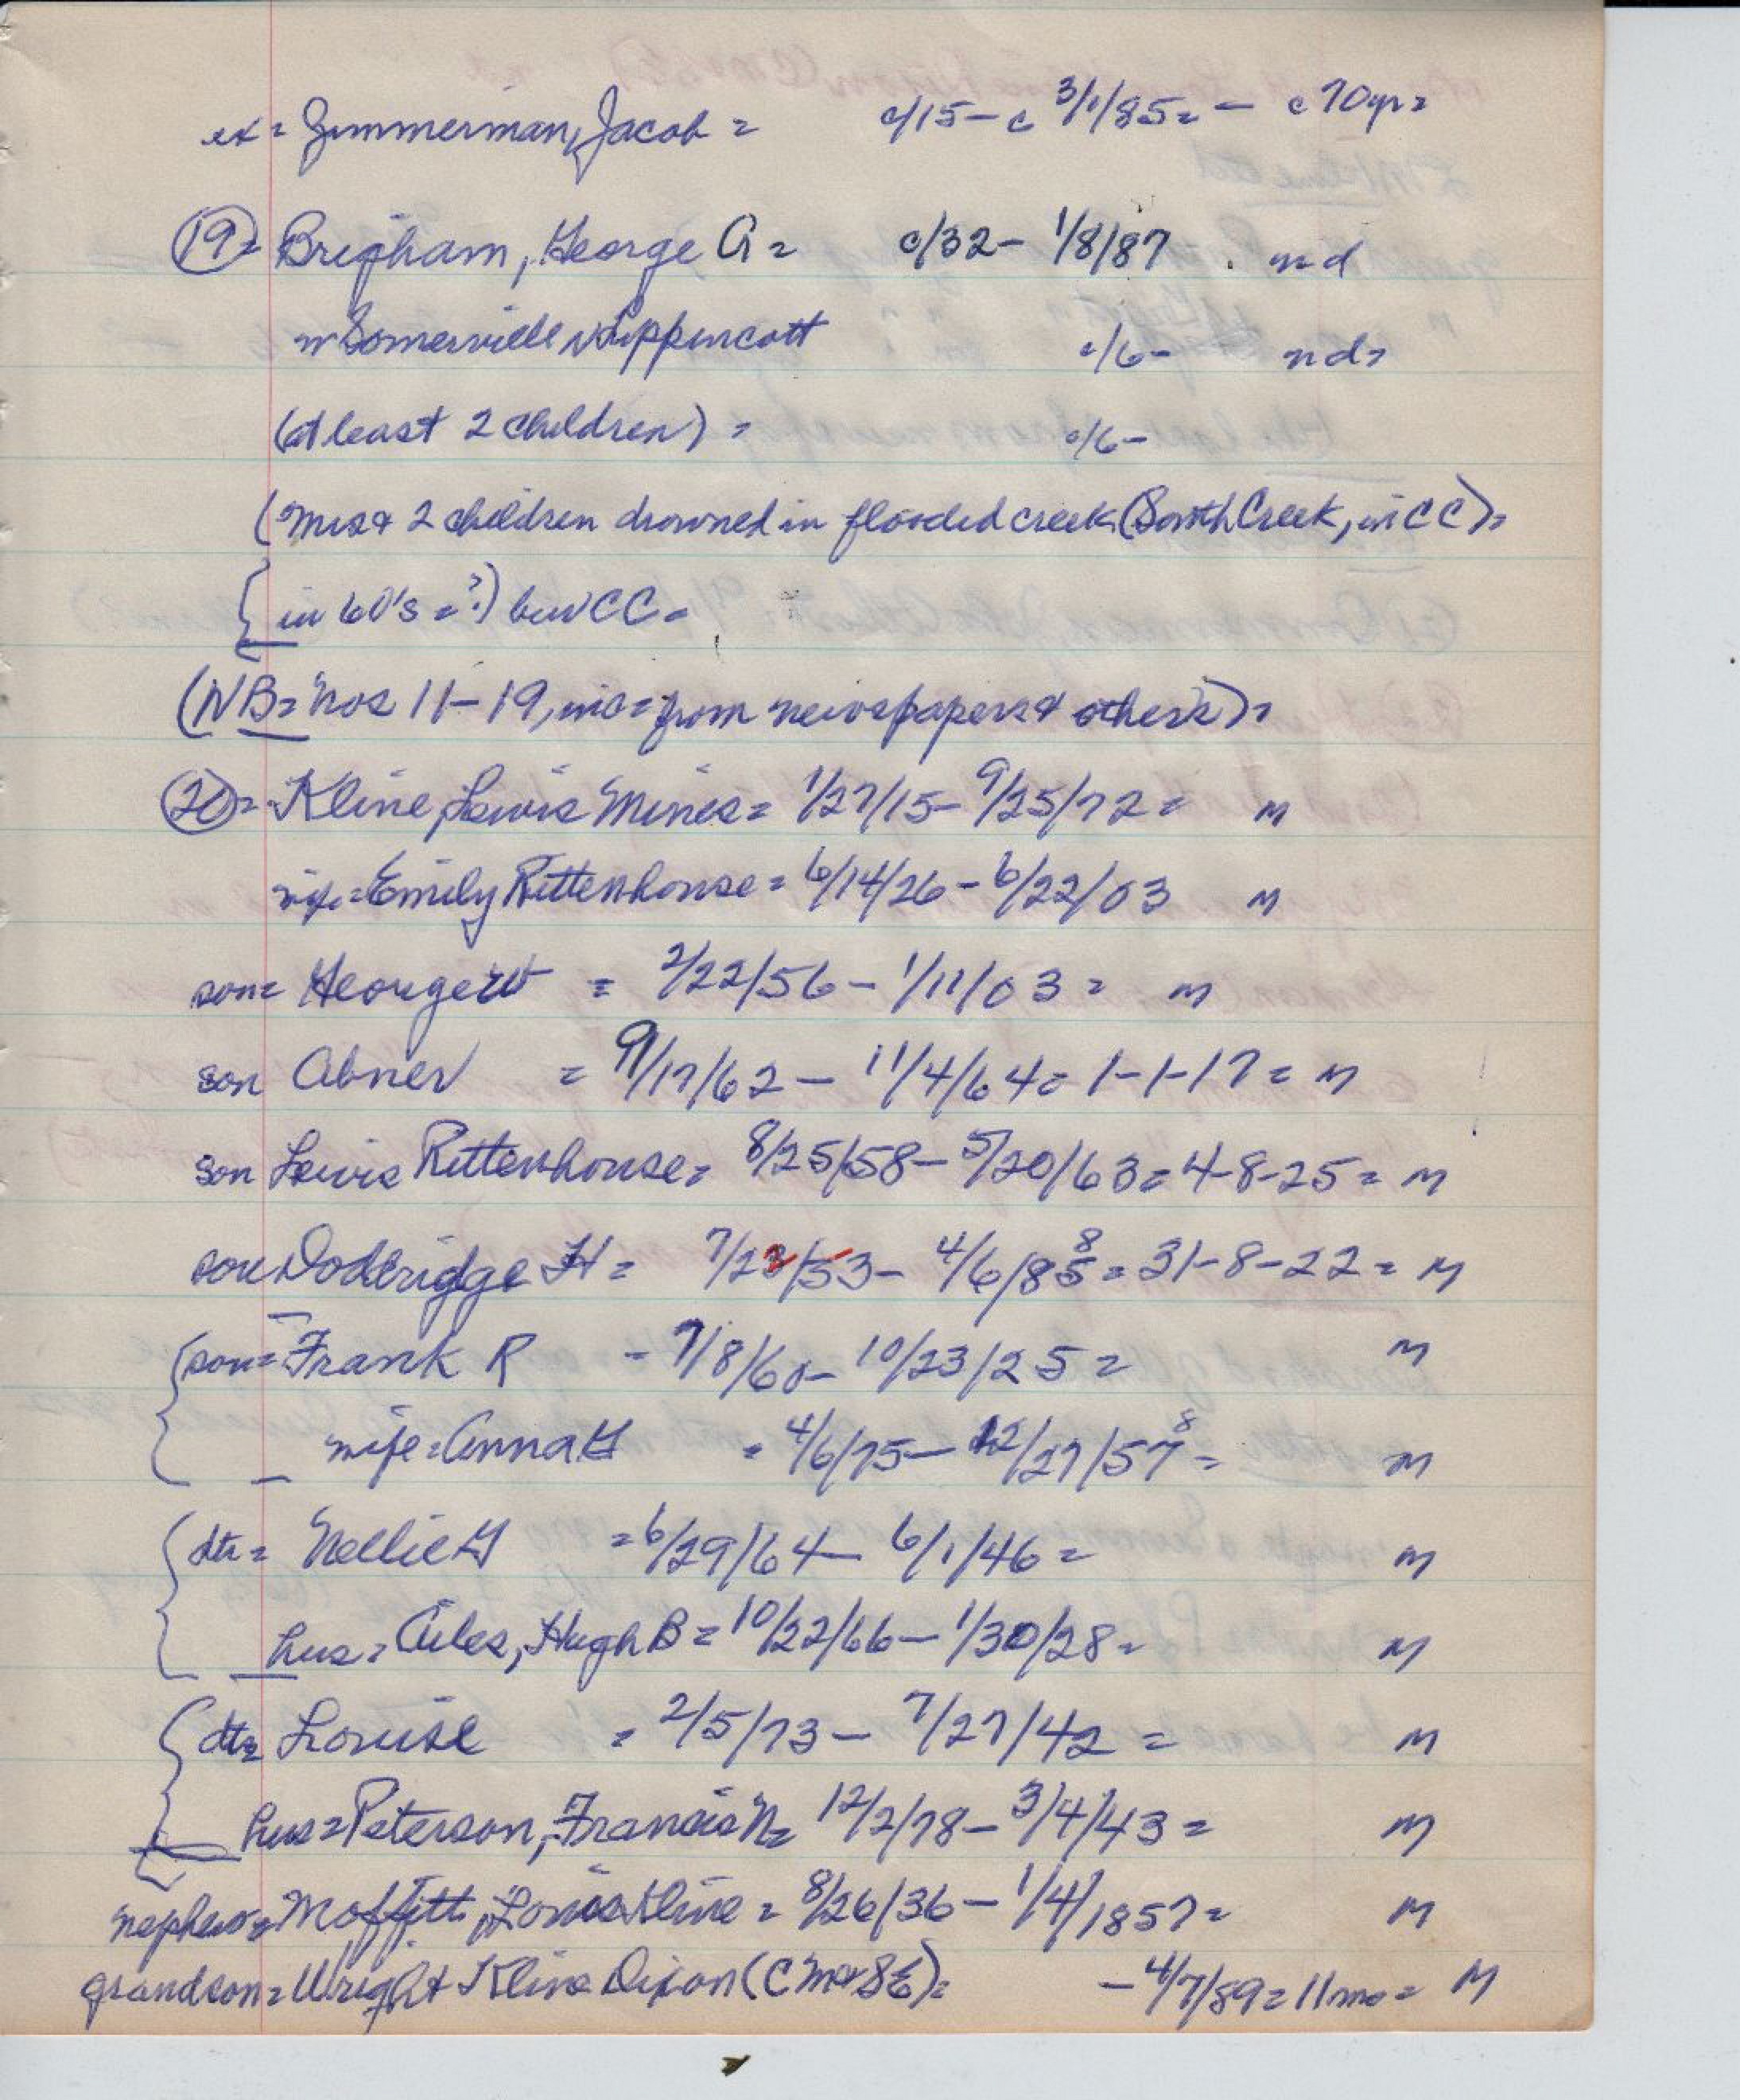 ex = Zimmerman, Jacob = c/15 – c 3/1/85 = – c 70yr =
(19) = Brigham, George A = c/32 – 1/8/87 . nd
w Somerville Lippencott c/6 – nd =
(at least 2 children) = c/6 –
(Mrs & 2 children drowned in flooded creek (South Creek, in CC) =
{ in 60's = ?) bur CC =
(NB = Nos 11 – 19, inc = from newspapers & others) =
(20) = Kline, Lewis Mines = 1/27/15 – 9/25/72 = M
wife = Emily Rittenhouse = 6/14/26 – 6/22/03 M
son = George W = 2/22/56 – 1/11/03 = M
son Abner = 9/17/62 – 11/4/64 = 1-1-17 = M
son Lewis Rittenhouse = 8/25/58 – 5/20/63 = 4-8-25 = M
son Dodbridge H = 7/23/53 – 4/6/85 8 = 31-8-22 = M
{ son = Frank R – 7/8/60 – 10/23/25 = M
wife = Anna G = 4/6/75 – 12/27/57 8 = M
{ dtr = Nellie G = 6/29/64 – 6/1/46 = M
hus = Ailes, Hugh B = 10/22/66 – 1/30/28 = M
{ dtr = Louise = 2/5/73 – 7/27/42 = M
hus = Peterson, Francis N = 12/2/78 – 3/4/43 = M
nephew = Moffitt, Kline = 8/26/36 – 1/4/1857 = M
grandson = Wright Kline Dixon (C M & S E) = – 4/7/89 = 11mo = M